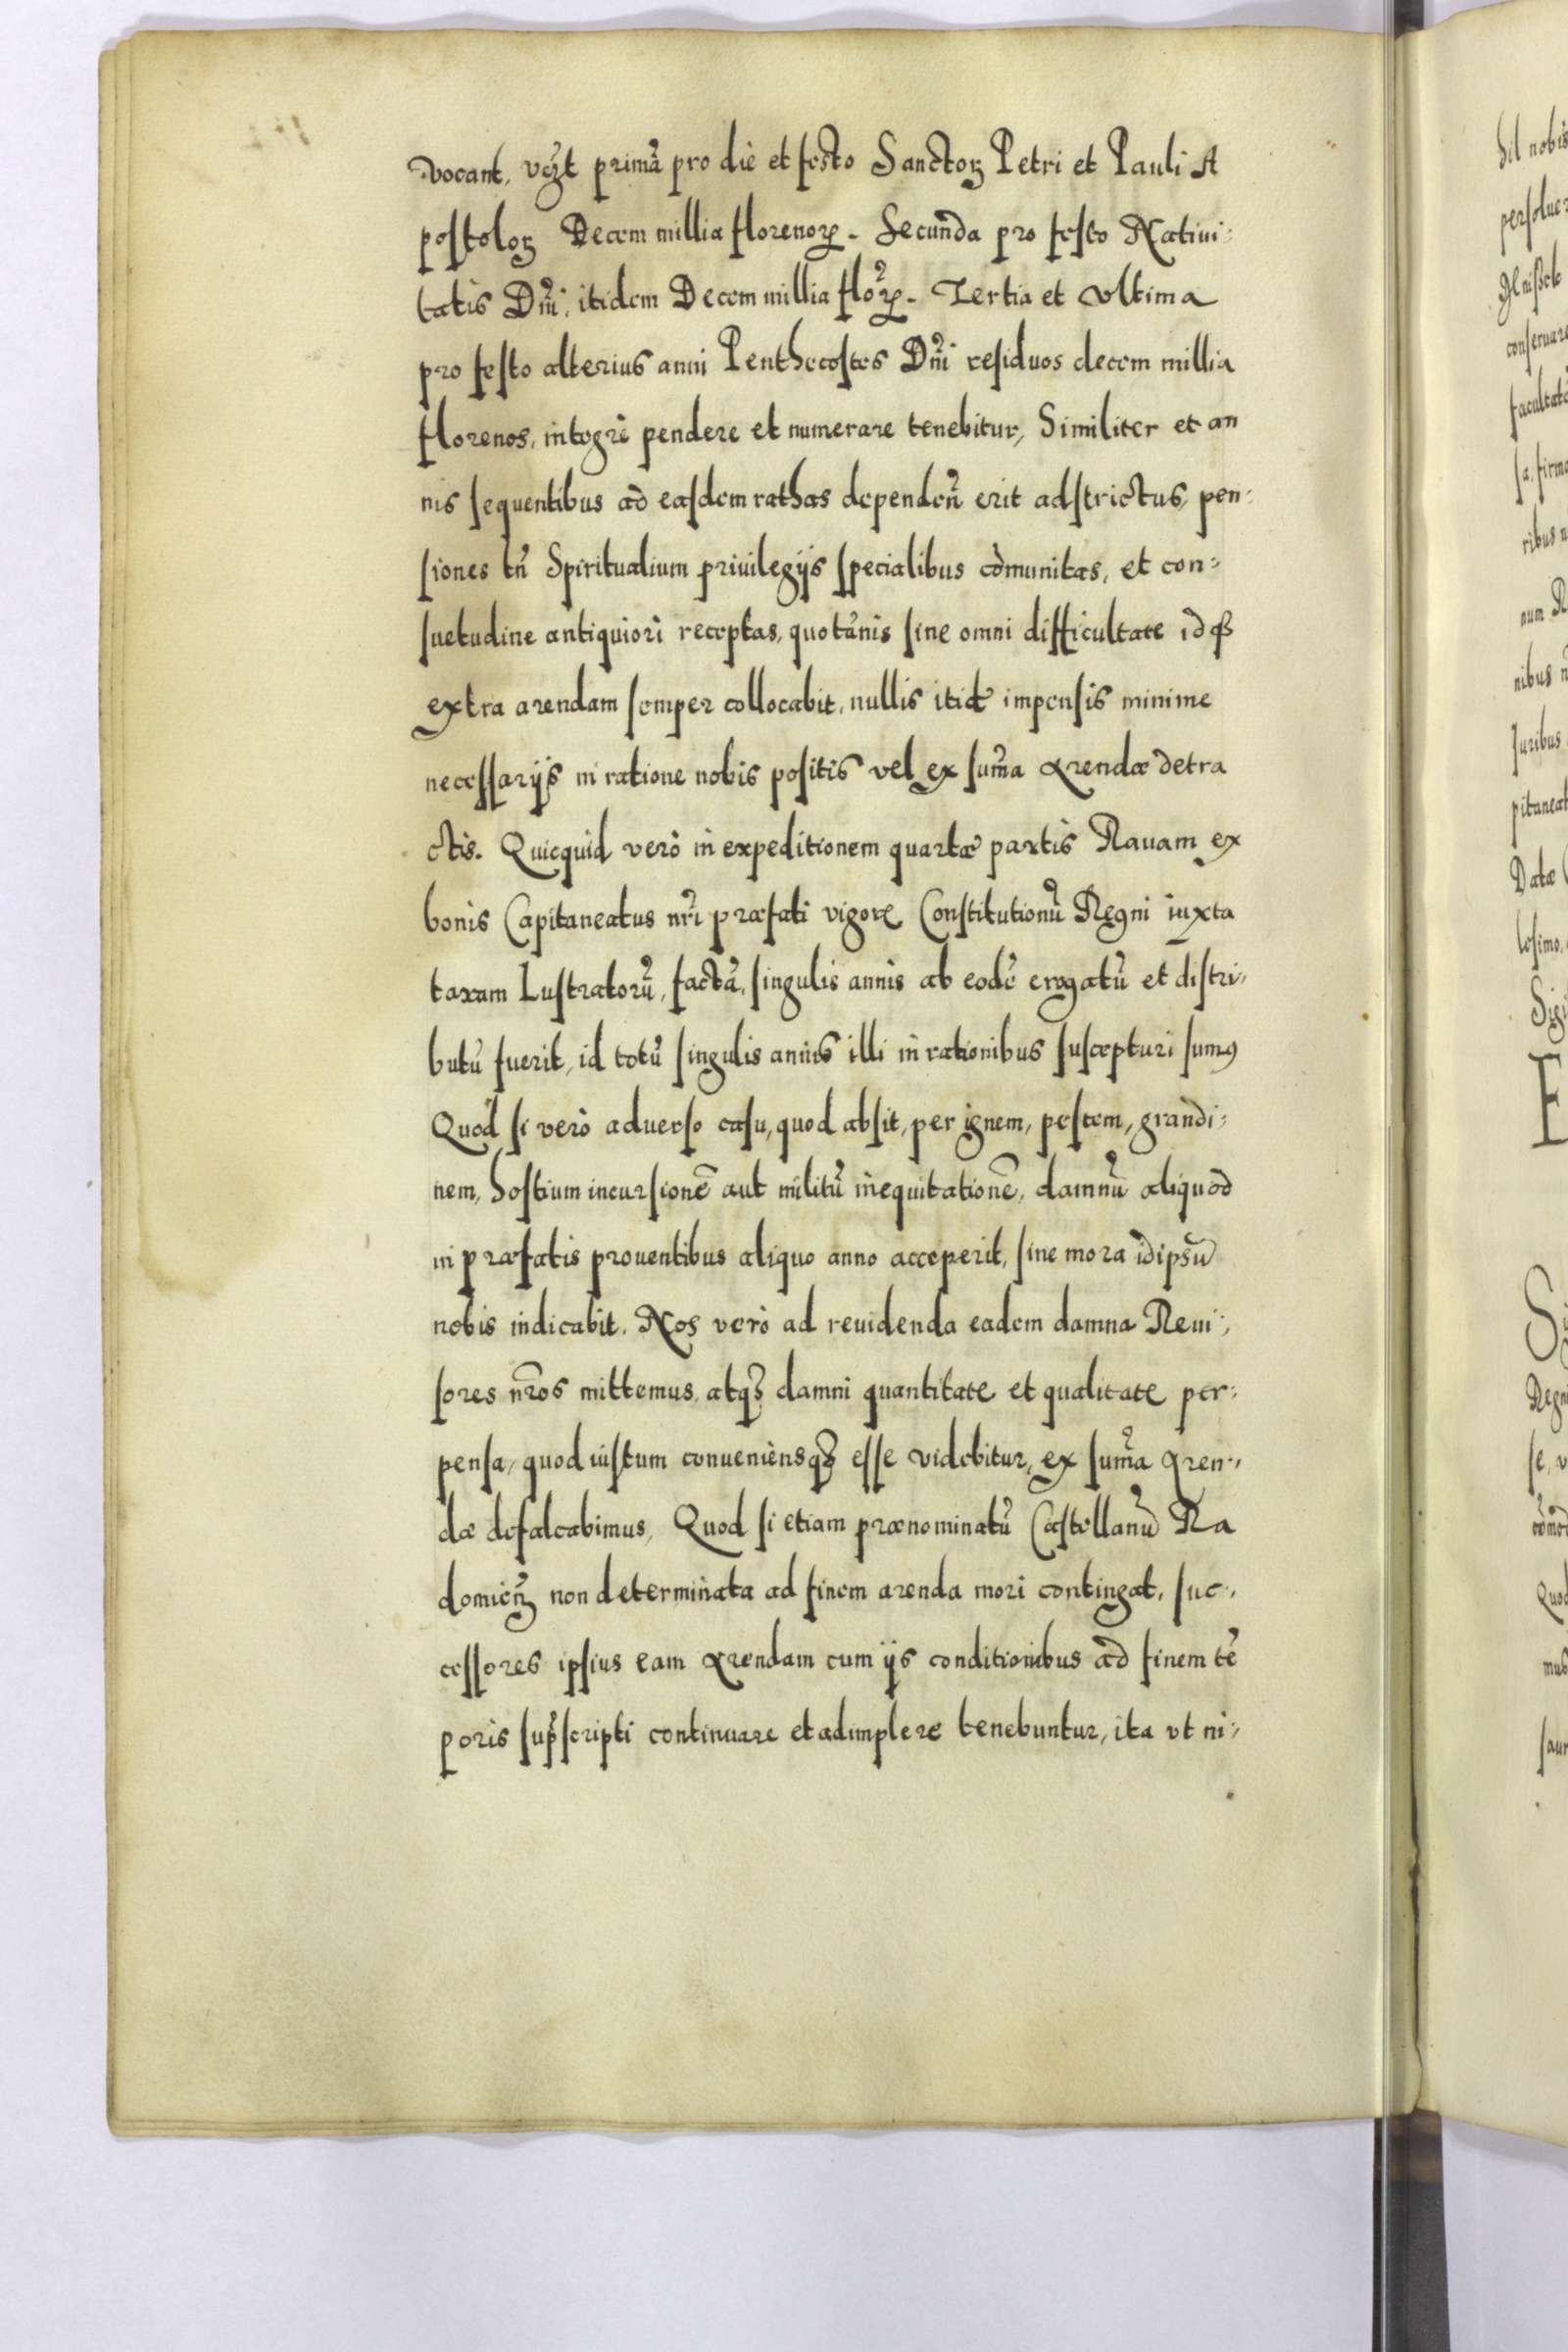 vocant, vczt primã pro die et festo Sanctoꝝ Petri et Pauli A
postoloꝝ Decem millia florenoꝝ. Secunda pro festo Natiui:
tatis Dñi: itidem Decem millia floꝝ. Tertia et vltima
pro festo alterius anni Penthecostes Dñi residuos decem millia
florenos, integrè pendere et numerare tenebitur, Similiter et an
nis sequentibus ad easdem rathas dependeñ erit adstrictus, pen:
siones tñ Spiritualium priuilegijs specialibus cõmunitas, et con:
suetudine antiquiori receptas, quotãnis sine omni difficultate idqꝫ
extra arendam semper collocabit, nullis itidẽ impensis minime
necessarijs in ratione nobis positis vel ex sum̃a Arendæ detra
ctis. Quicquid verò in expeditionem quartæ partis Rauam ex
bonis Capitaneatus nr̃i præfati vigore Constitutionũ Regni iuxta
taxam Lustratorũ, factã, singulis annis ab eodẽ erogatũ et distri:
butũ fuerit, id totũ singulis annis illi in rationibus suscepturi sumꝰ
Quod si verò aduerso casu, quod absit, per ignem, pestem, grandi:
nem, hostium incursionẽ aut militũ inequitationẽ, damnũ aliquod
in præfatis prouentibus aliquo anno acceperit, sine mora idipsũ
nobis indicabit. Nos verò ad reuidenda eadem damna Reui:
sores nr̃os mittemus, atqꝫ damni quantitate et qualitate per:
pensa, quod iustum conueniensqꝫ esse videbitur, ex sum̃a Aren:
dæ defalcabimus, Quod si etiam prænominatũ Castellanũ Ra
domieñ non determinata ad finem arenda mori contingat, suc:
cessores ipsius eam Arendam cum ijs conditionibus ad finem tẽ
poris sup̃scripti continuare et adimplere tenebuntur, ita vt ni: